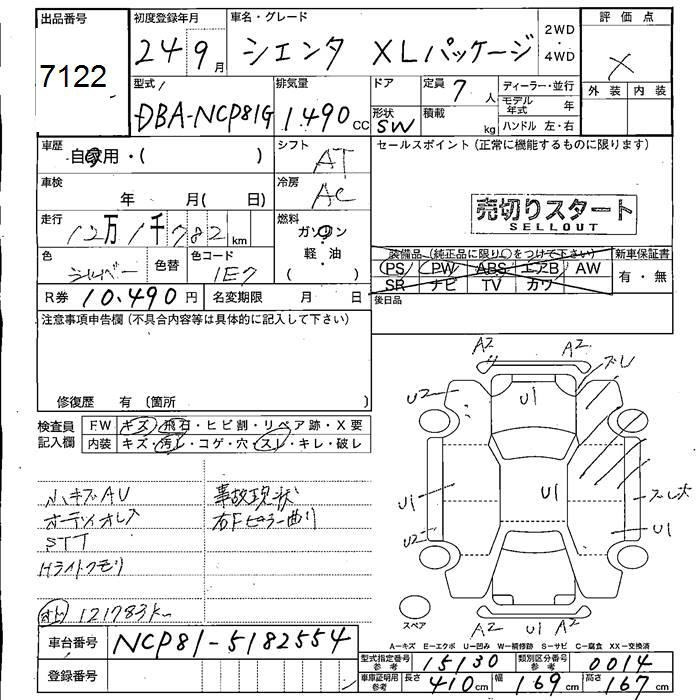 出品番号
7122
初度登録年月
24 9月
車名・グレード
シエンタ XLパッケージ
2WD
・
4WD
評価点
X
外装 内装
型式
DBA-NCP81G
排気量
1.490cc
ドア
形状
SW
定員 7人
積載 kg
ディーラー・並行
モデル年式 年
ハンドル 左・右
車歴
自家用・( )
シフト
AT
車検
年 月( 日)
冷房
AC
走行
12万1千782km
燃料
ガソリン
軽・油
( )
色
シルバー
色替
色コード
1E7
R券 10.490円
名変期限 月 日
セールスポイント(正常に機能するものに限ります)
売切りスタート
SELLOUT
装備品(純正品に限り○をつけて下さい)
PS PW ABS エアB AW
SR ナビ TV カワ
新車保証書
有・無
後日品
注意事項申告欄(不具合内容等は具体的に記入して下さい)
修復歴 有(箇所 )
検査員
記入欄
FW キズ・飛石・ヒビ割・リペア跡・X要
内装 キズ・汚レ・コゲ・穴・スレ・キレ・破レ
小キズAU
オーディオレス
STT
Hライトクモリ
事故現状
右Fピラー曲り
121783k
A2 A2
ズレ
U2
U1
U1
U1
ズレ大
U2
U1
A2 U1 A2
スペア
A-キズ E-エクボ U-凹み W-補修跡 S-サビ C-腐食 XX-交換済
車台番号 NCP81-5182554
登録番号
型式指定番号
参考
15130
類別区分番号
参考
0014
車庫証明用
参考
長さ 410cm 幅 169cm 高さ 167cm